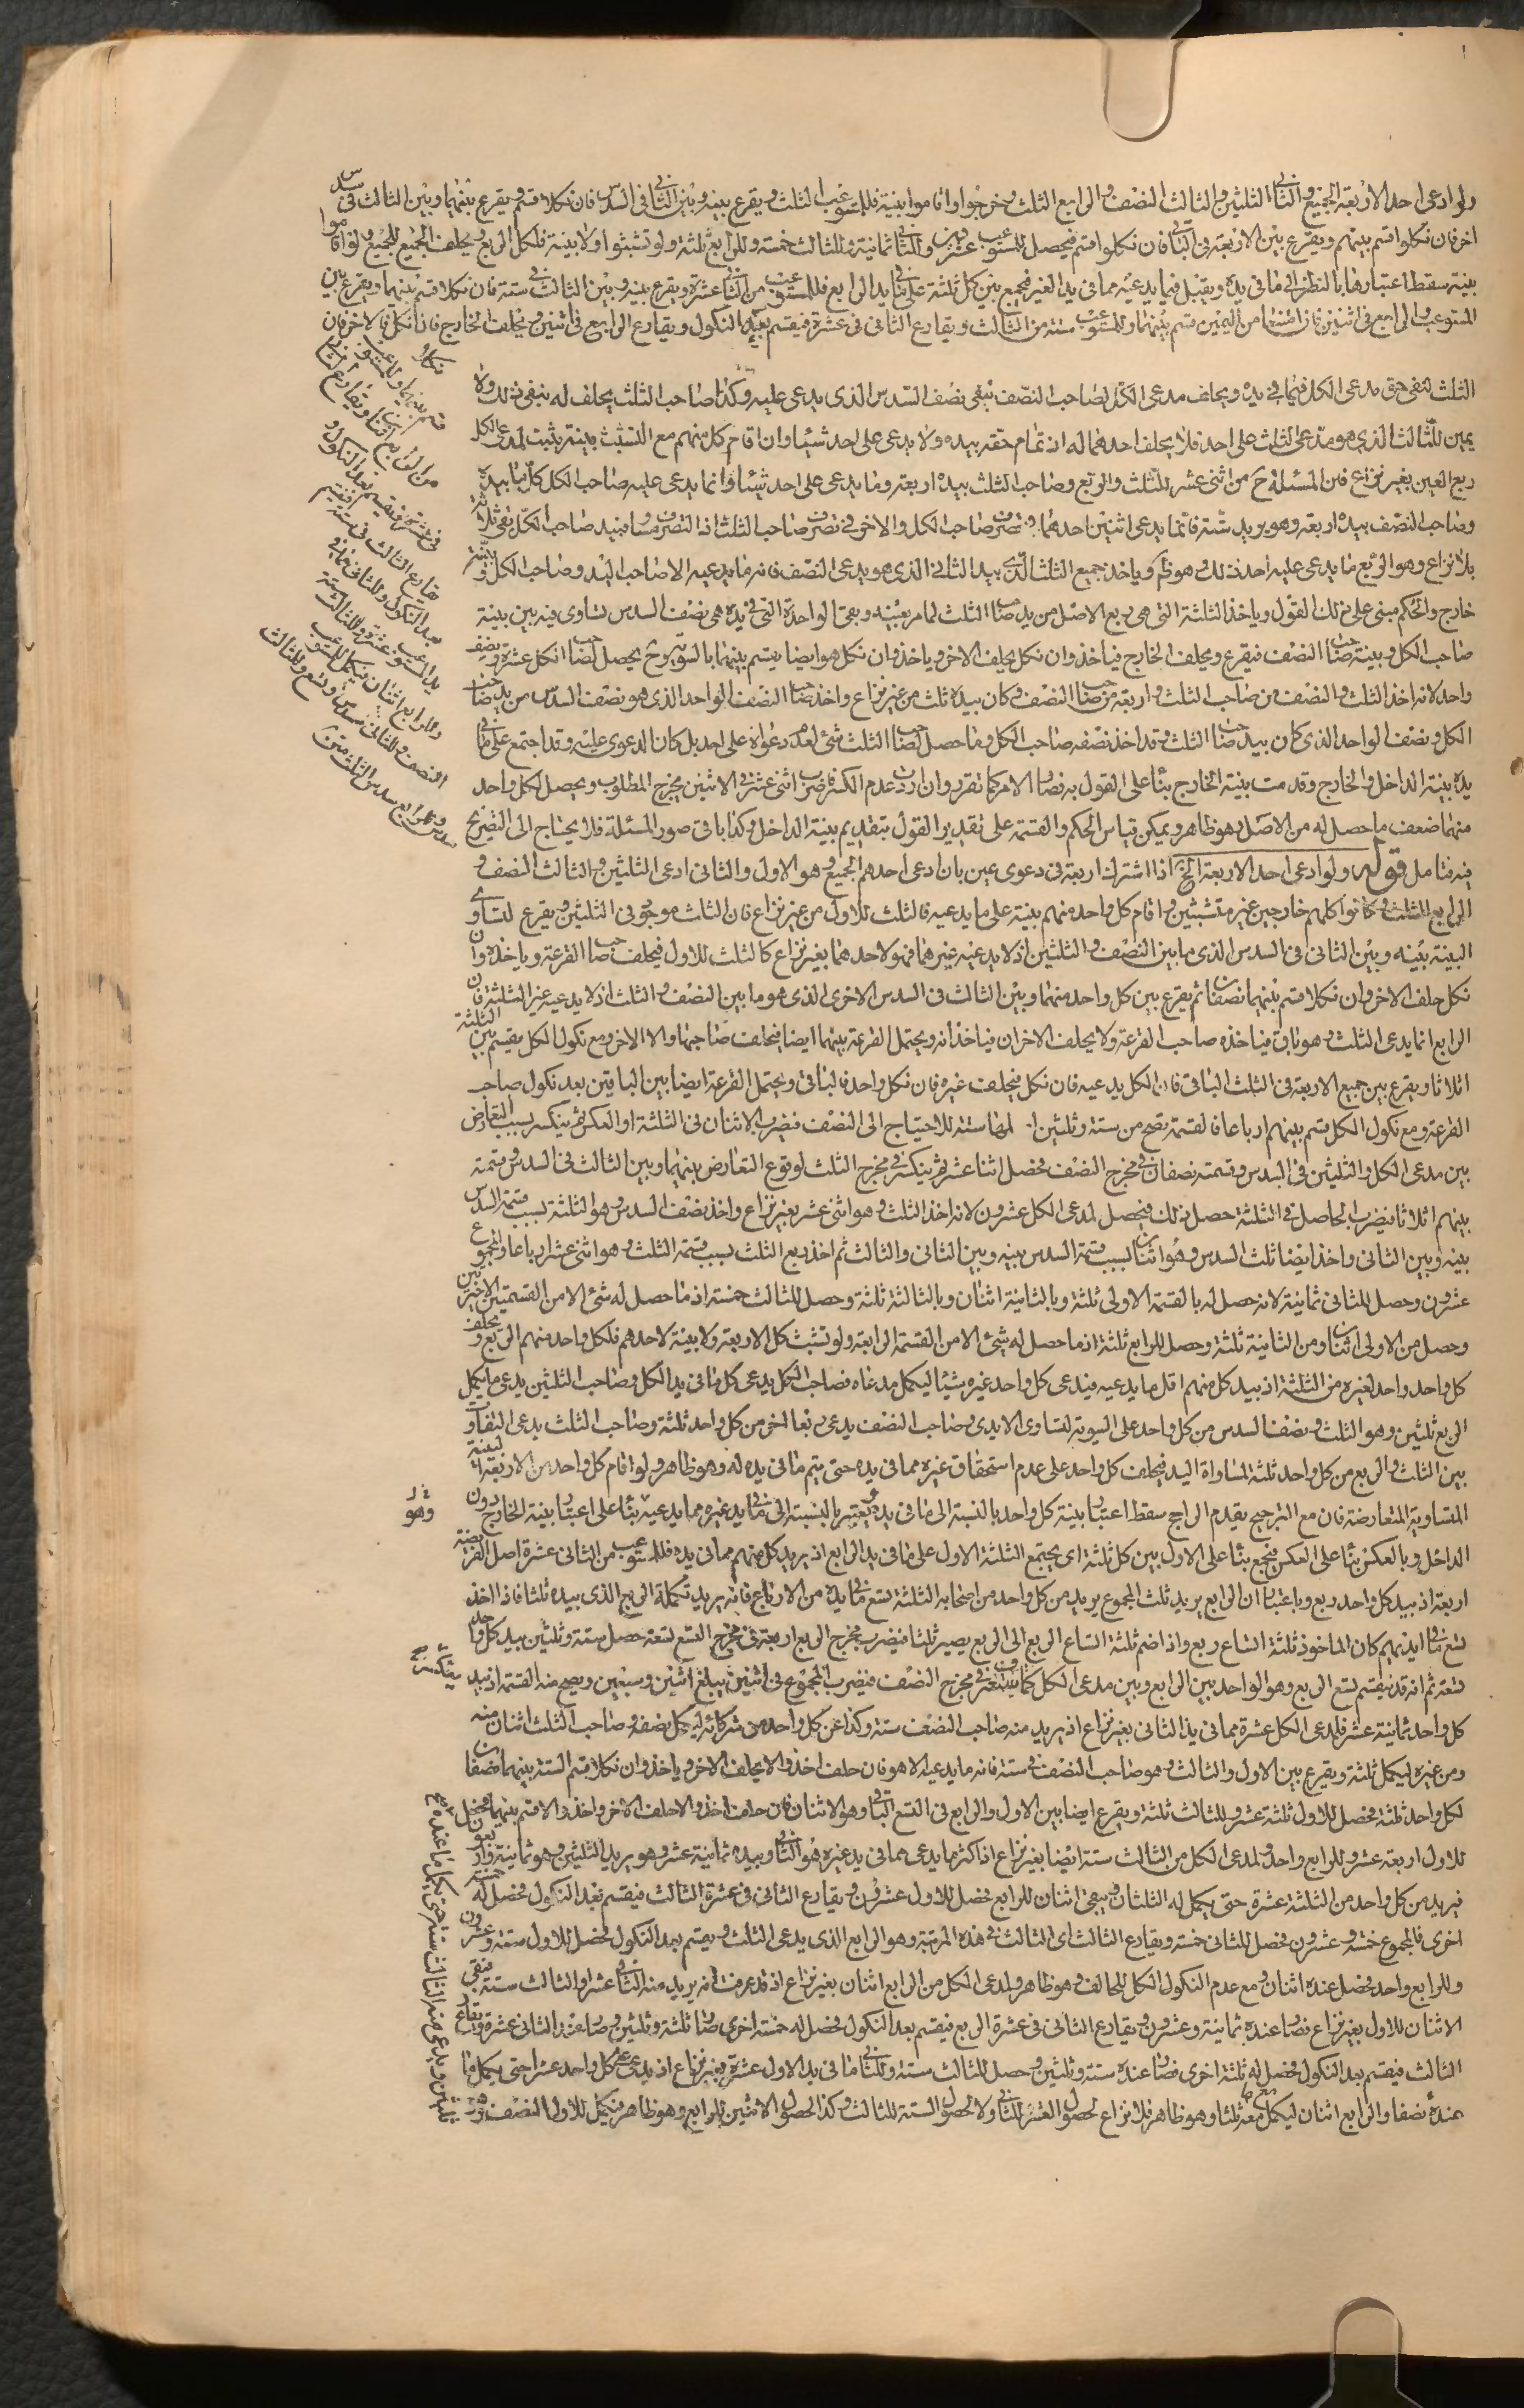 ولو ادعى احد الاربعة الجميع والثانى الثلثين والثالث النصف والرابع الثلث وخرجوا واقاموا بينة فللمستوعب الثلث ويقرع بينه وبين الثانى فى السدس فان نكلا قسم ويقرع بينهما وبين الثالث فى سدس
اخر فان نكلوا قسم بينهم ويقرع بين الاربعة فى الباقى فان نكلوا قسم فيحصل للمستوعب عشرون وللثانى ثمانية وللثالث خمسة وللرابع ثلثة ولو تشبثوا ولا بينة فلكل الربع ويحلف الجميع للجميع ولو اقاموا
بينة سقط اعتبارها بالنظر الى ما فى يده ويقبل فيما يدعيه مما فى يد الغير فيجمع بين كل ثلثة على ما فى يد الرابع فللمستوعب من الثانى عشرة ويقرع بينه وبين الثالث فى ستة فان نكلا قسم بينهما ويقرع بين
المستوعب والرابع فى اثنين فان امتنعا من اليمين قسم بينهما وللمستوعب ستة من الثالث ويقارع الثانى فى عشرة فيقسم بعد النكول ويقارع الرابع فى اثنين ويحلف الخارج فان نكل فالاخر فان
نكلا
قسم بينهما وللمستوعب
من الرابع اثنان ويقارع الثانى
فى عشرة فيقسم بعد النكول و
يقارع الثالث فى ستة فيقسم
بعد النكول وللثانى مما فى
يد المستوعب عشرة وللثالث ستة
وللرابع اثنان فيكمل للمستوعب
النصف وللثانى سدس وتسع وللثالث
سدس وللرابع سدس الثلث
الثلث لنفى حق مدعى الكل فيما فى يده ويحلف مدعى الكل لصاحب النصف بنفى نصف السدس الذى يدعى عليه وكذا صاحب الثلث يحلف له بنفى ذلك ولا
يمين للثالث الذى هو مدعى الثلث على احد فلا يحلف احدهما له اذ تمام حقه بيده ولا يدعى على احد شيئا وان اقام كل منهم مع التشبث بينة يثبت لمدعى الكل
ربع العين بغير نزاع فان المسئلة ح من اثنى عشر للثلث والربع وصاحب الثلث بيده اربعة وما يدعى على احد شيئا وانما يدعى عليه صاحب الكل كل ما بيده
وصاحب النصف بيده اربعة وهو يريد ستة فانما يدعى اثنين احدهما فى تصرف صاحب الكل والاخر فى تصرف صاحب الثلث
بلا نزاع وهو الربع ما يدعى عليه احد
خارج والحكم مبنى على ذلك القول وياخذ الثلثة التى هى ربع الاصل من يد صاحب الثلث لما مر بعينه وبقى الواحدة التى فى يده هى نصف السدس تساوى فيه بين بينة
صاحب الكل وبينة صاحب النصف فيقرع ويحلف الخارج فياخذ وان نكل يحلف الاخر وياخذ وان نكل هو ايضا يقسم بينهما بالسوية وح يحصل لصاحب الكل عشرة ونصف
واحد لانه اخذ الثلث والنصف من صاحب الثلث واربعة من صاحب النصف وكان بيده ثلث من غير نزاع واخذ صاحب النصف الواحد الذى هو نصف السدس من يد صاحب
الكل ونصف الواحد الذى كان بيد صاحب الثلث وقد اخذ نصفه صاحب الكل وما حصل لصاحب الثلث شئ لعدم دعواه على احد بل كان الدعوى عليه وقد اجتمع على ما فى
يده بينة الداخل والخارج وقدمت بينة الخارج بناء على القول به فصار الامر كما تقرر وان اردت عدم الكسر فاضرب اثنى عشر فى الاثنين مخرج المطلوب ويحصل لكل واحد
منهما ضعف ما حصل له من الاصل وهو ظاهر ويمكن قياس الحكم والقسمة على تقدير القول بتقديم بينة الداخل وكذا باقى صور المسئلة فلا يحتاج الى التصريح
فيه فتامل قوله ولو ادعى احد الاربعة الخ اذا اشترك اربعة فى دعوى عين بان ادعى احدهم الجميع وهو الاول والثانى ادعى الثلثين والثالث النصف و
الرابع الثلث وكانوا كلهم خارجين غير متشبثين واقام كل واحد منهم بينة على ما يدعيه فالثلث للاول من غير نزاع فان الثالث موجود فى الثلثين ويقرع لتساوى
البينة بينه وبين الثانى فى السدس الذى ما بين النصف والثلثين اذ لا يدعيه غيرهما فهو لاحدهما بغير نزاع كالثلث للاول فيحلف صاحب القرعة وياخذه وان
نكل حلف الاخر وان نكلا قسم بينهما نصفان ثم يقرع بين كل واحد منهما وبين الثالث فى السدس الاخرى الذى هو ما بين النصف والثلث اذ لا يدعيه غير الثلثة فان
الرابع انما يدعى الثلث وهو باق فياخذه صاحب القرعة ولا يحلف الاخران فياخذانه ويحتمل القرعة بينهما ايضا فيحلف صاحبها والا الاخر ومع نكول الكل يقسم بين الثلثة
اثلاثا ويقرع بين جميع الاربعة فى الثلث الباقى فان الكل يدعيه فان نكل فيحلف غيره فان نكل واحد فالباقى ويحتمل القرعة ايضا بين الباقين بعد نكول صاحب
القرعة ومع نكول الكل قسم بينهم ارباعا فالقسمة تصح من ستة وثلثين اصلها ستة للاحتياج الى النصف فضرب الاثنان فى الثلثة او العكس ثم ينكسر بسبب التعارض
بين مدعى الكل والثلثين فى السدس وقسمته نصفان فى مخرج النصف فحصل اثنا عشر ثم ينكسر فى مخرج الثلث لوقوع التعارض بينهما وبين الثالث فى السدس وقسمته
بينهم اثلاثا فيضرب الحاصل فى الثلثة حصل ذلك فيحصل لمدعى الكل عشرون لانه اخذ الثلث وهو اثنى عشر بغير نزاع واخذ نصف السدس وهو الثلثة بسبب قسمة السدس
بينه وبين الثانى واخذ ايضا ثلث السدس وهو اثنان بسبب قسمة السدس بينه وبين الثانى والثالث ثم اخذ ربع الثلث بسبب قسمة الثلث وهو اثنى عشر ارباعا والمجموع
عشرون وحصل للثانى ثمانية لانه حصل له بالقسمة الاولى ثلثة وبالثانية اثنان وبالثالثة ثلثة وحصل للثالث خمسة اذ ما حصل له شئ الا من القسمتين الاخيرتين
وحصل من الاولى اثنان ومن الثانية ثلثة وحصل للرابع ثلثة اذ ما حصل له شئ الا من القسمة الرابعة ولو تشبث كل الاربعة ولا بينة لاحدهم فلكل واحد منهم الربع ويحلف
كل واحد واحد لغيره من الثلثة اذ بيد كل منهم اقل ما يدعيه فيدعى كل واحد غيره شيئا ليكمل مدعاه فصاحب الكل يدعى كل ما فى يد الكل وصاحب الثلثين يدعى ما يكمل
الربع ثلثين وهو الثلث ونصف السدس من كل واحد على السوية لتساوى الايدى وصاحب النصف يدعى ربعا اخر من كل واحد ثلثة وصاحب الثلث يدعى التفاوت
بين الثلث والربع من كل واحد ثلثة لمساواة اليد فيحلف كل واحد على عدم استحقاق غيره مما فى يده حتى يتم ما فى يده له وهو ظاهر ولو اقام كل واحد من الاربعة البينة
المتساوية المتعارضة فان مع الترجيح يقدم الراجح سقط اعتبار بينة كل واحد بالنسبة الى ما فى يده ويعتبر بالنسبة الى ما فى يد غيره مما يدعيه بناء على اعتبار بينة الخارج دون
الداخل وبالعكس بناء على العكس فيجمع بناء على الاول بين كل ثلثة اى يجتمع الثلثة الاول على ما فى يد الرابع اذ يريد كل منهم مما فى يده فللمستوعب من الثانى عشرة اصل الفريضة
اربعة اذ بيد كل واحد ربع وباعتبار ان الرابع يريد ثلث المجموع يريد من كل واحد من اصحابه الثلثة تسع ما فى يده من الارباع فانه يريد تكملة الربع الذى بيده ثلثا فاذا اخذ
تسع ما فى ايديهم كان الماخوذ ثلثة اتساع ربع واذا ضم ثلثة اتساع الربع الى الربع يصير ثلثا فيضرب مخرج الربع اربعة فى مخرج التسع تسعة حصل ستة وثلثين بيد كل واحد
تسعة ثم انه قد يقسم تسع الربع وهو الواحد بين الرابع وبين مدعى الكل كما ستعرف فى مخرج النصف فيضرب المجموع فى اثنين يبلغ اثنين وسبعين ويصح منه القسمة اذ بيد
كل واحد ثمانية عشر فلمدعى الكل عشرة مما فى يد الثانى بغير نزاع اذ يريد منه صاحب النصف ستة وكذا عن كل واحد من شركائه ليكمل نصفه وصاحب الثلث اثنان منه
ومن غيره ليكمل ثلثه ويقرع بين الاول والثالث وهو صاحب النصف فى ستة فانه ما يدعيه الا هو فان حلف اخذ والا يحلف الاخر وياخذ وان نكلا قسم الستة بينهما نصفان
لكل واحد ثلثة فحصل للاول ثلثة عشر وللثالث ثلثة ويقرع ايضا بين الاول والرابع فى التسع الباقى وهو الاثنان فان حلف اخذ والا حلف الاخر واخذ والا قسم بينهما فحصل
للاول اربعة عشر وللرابع واحد ولمدعى الكل من الثالث ستة ايضا بغير نزاع اذ اكثر ما يدعى مما فى يد غيره هو الثانى وبيده ثمانية عشر وهو يريد الثلثين وهو ثمانية واربعون
فيريد من كل واحد من الثلثة عشرة حتى يكمل له الثلثان ويبقى اثنان للرابع فحصل للاول عشرون ويقارع الثانى فى عشرة الثالث فيقسم بعد النكول فحصل له خمسة
اخرى فالمجموع خمسة وعشرون فحصل للثانى خمسة ويقارع الثالث اى الثالث فى هذه المرتبة وهو الرابع الذى يدعى الثلث ويقسم بعد النكول فحصل للاول ستة وعشرون
وللرابع واحد فحصل عنده اثنان ومع عدم النكول الكل للحالف وهو ظاهر ولمدعى الكل من الرابع اثنان بغير نزاع اذ قد عرفت انه يريد منه الثانى عشرا والثالث ستة فبقى
الاثنان للاول بغير نزاع فصار عنده ثمانية وعشرون ويقارع الثانى فى عشرة الرابع فيقسم بعد النكول فحصل له خمسة اخرى وصار ثلثة وثلثين وصار عند الثانى عشرة ويقارع
الثالث فيقسم بعد النكول فحصل له ثلثة اخرى فصار عنده ستة وثلثين وحصل للثالث ستة وللثانى مما فى يد الاول عشرة بغير نزاع اذ يدعى على كل واحد عشرا حتى يكمل ما
عنده نصفا والرابع اثنان ليكمل معه ثلثا وهو ظاهر فلا نزاع لحصول العشر للثانى ولا لحصول الستة للثالث وكذا لحصول الاثنين للرابع وهو ظاهر فيكمل للاول النصف